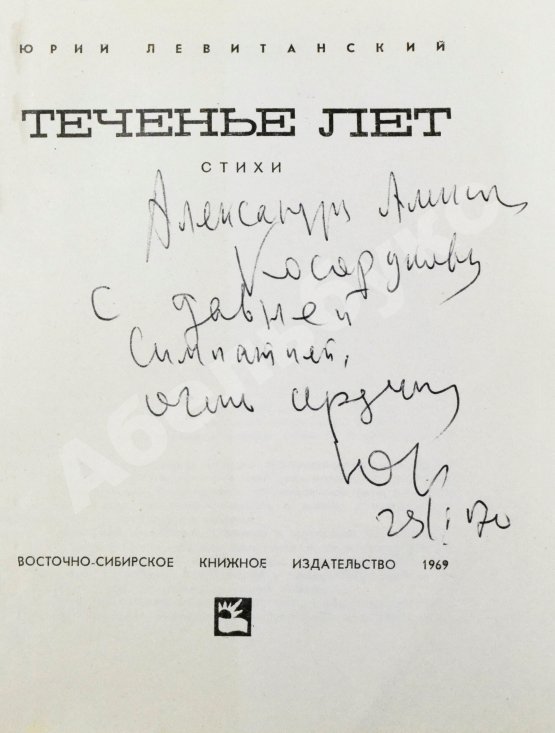 ЮРИЙ ЛЕВИТАНСКИЙ
ТЕЧЕНЬЕ ЛЕТ
СТИХИ
Александру
с давней
симпатией,
очень сердечно
29/I 70
ВОСТОЧНО-СИБИРСКОЕ КНИЖНОЕ ИЗДАТЕЛЬСТВО 1969